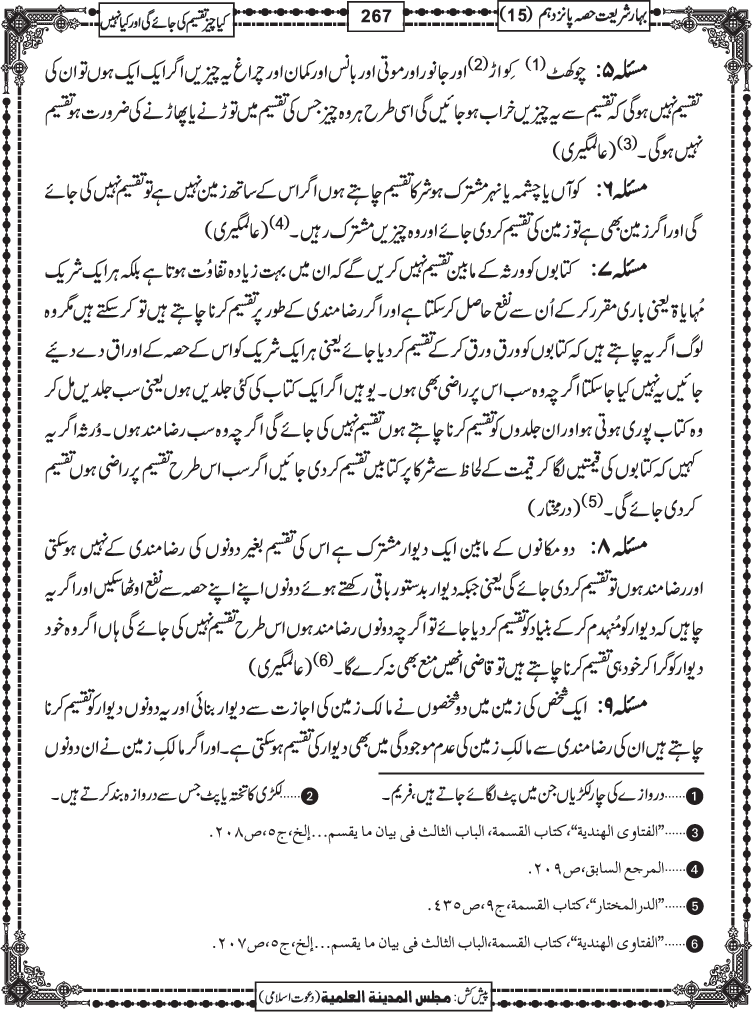 بہار شریعت حصہ پانزدہم (15)
267
کیا چیز تقسیم کی جائے گی اور کیا نہیں
مسئلہ ۵: چوکھٹ(1) کِواڑ(2) اور جانور اور موتی اور بانس اور کمان اور چراغ یہ چیزیں اگر ایک ایک ہوں تو ان کی
تقسیم نہیں ہوگی کہ تقسیم سے یہ چیزیں خراب ہو جائیں گی اسی طرح ہر وہ چیز جس کی تقسیم میں توڑنے یا پھاڑنے کی ضرورت ہو تقسیم
نہیں ہوگی۔(3) (عالمگیری)
مسئلہ ۶: کوآں یا چشمہ یا نہر مشترک ہو شرکا تقسیم چاہتے ہوں اگر اس کے ساتھ زمین نہیں ہے تو تقسیم نہیں کی جائے
گی اور اگر زمین بھی ہے تو زمین کی تقسیم کردی جائے اور وہ چیزیں مشترک رہیں۔(4) (عالمگیری)
مسئلہ ۷: کتابوں کو ورثہ کے مابین تقسیم نہیں کریں گے کہ ان میں بہت زیادہ تفاوُت ہوتا ہے بلکہ ہر ایک شریک
مُہایاۃ یعنی باری مقرر کر کے اُن سے نفع حاصل کرسکتا ہے اور اگر رضا مندی کے طور پر تقسیم کرنا چاہتے ہیں تو کر سکتے ہیں مگر وہ
لوگ اگر یہ چاہتے ہیں کہ کتابوں کو ورق ورق کر کے تقسیم کر دیا جائے یعنی ہر ایک شریک کو اس کے حصہ کے اوراق دے دیئے
جائیں یہ نہیں کیا جا سکتا اگرچہ وہ سب اس پر راضی بھی ہوں۔ یوہیں اگر ایک کتاب کی کئی جلدیں ہوں یعنی سب جلدیں مل کر
وہ کتاب پوری ہوتی ہو اور ان جلدوں کو تقسیم کرنا چاہتے ہوں تقسیم نہیں کی جائے گی اگرچہ وہ سب رضا مند ہوں۔ وُرثہ اگر یہ
کہیں کہ کتابوں کی قیمتیں لگا کر قیمت کے لحاظ سے شرکا پر کتابیں تقسیم کردی جائیں اگر سب اس طرح تقسیم پر راضی ہوں تقسیم
کردی جائے گی۔(5) (درمختار)
مسئلہ ۸: دو مکانوں کے مابین ایک دیوار مشترک ہے اس کی تقسیم بغیر دونوں کی رضا مندی کے نہیں ہوسکتی
اور رضا مند ہوں تو تقسیم کردی جائے گی یعنی جبکہ دیوار بدستور باقی رکھتے ہوئے دونوں اپنے اپنے حصہ سے نفع اوٹھا سکیں اور اگر یہ
چاہیں کہ دیوار کو مُنہدم کر کے بنیاد کو تقسیم کر دیا جائے تو اگرچہ دونوں رضا مند ہوں اس طرح تقسیم نہیں کی جائے گی ہاں اگر وہ خود
دیوار کو گرا کر خود ہی تقسیم کرنا چاہتے ہیں تو قاضی انھیں منع بھی نہ کرے گا۔(6) (عالمگیری)
مسئلہ ۹: ایک شخص کی زمین میں دو شخصوں نے مالک زمین کی اجازت سے دیوار بنائی اور یہ دونوں دیوار کو تقسیم کرنا
چاہتے ہیں ان کی رضا مندی سے مالکِ زمین کی عدم موجودگی میں بھی دیوار کی تقسیم ہوسکتی ہے۔ اور اگر مالکِ زمین نے ان دونوں
1......دروازے کی چار لکڑیاں جن میں پٹ لگائے جاتے ہیں، فریم۔ 2......لکڑی کا تختہ یا پٹ جس سے دروازہ بند کرتے ہیں۔
3......"الفتاوی الهندية"، کتاب القسمة، الباب الثالث فی بیان ما یقسم...إلخ، ج٥، ص٢٠٨.
4......المرجع السابق، ص٢٠٩.
5......"الدرالمختار"، کتاب القسمة، ج٩، ص٤٣٥.
6......"الفتاوی الهندية"، کتاب القسمة، الباب الثالث فی بیان ما یقسم...إلخ، ج٥، ص٢٠٧.
پیش کش: مجلس المدينة العلمية (دعوت اسلامی)